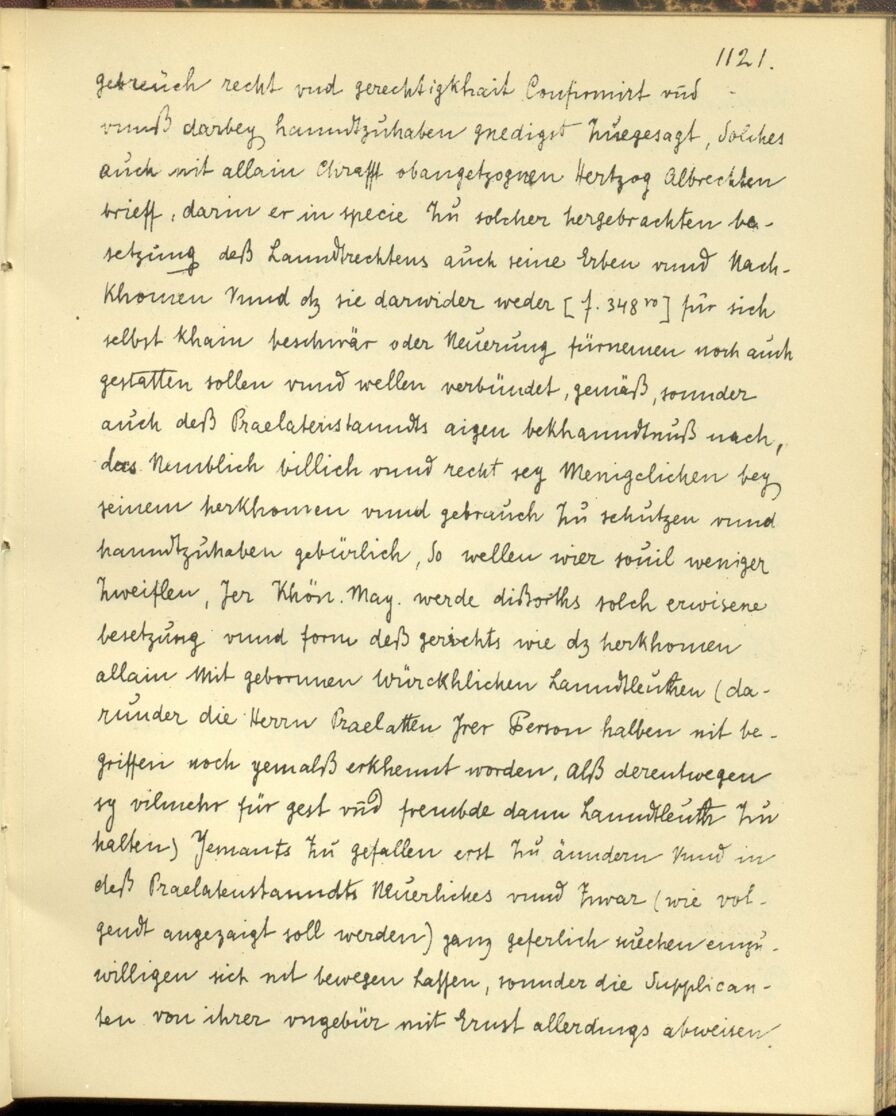 1121.
gebreuch recht vnd gerechtigkhait Confirmirt vnd
vnnß darbey hanndtzuhaben gnedigst Zuegesagt, Solches
auch mit allain Chrafft obangetzognen Hertzog Albrechten
brieff, darin er in specie Zu solcher hergebrachten be-
setzung deß Lanndtrechtens auch seine Erben vnnd Nach-
khomen Vnnd dz sie darwider weder [f. 348 ro] für sich
selbst khain beschwär oder Neuerung fürnemen noch auch
gestatten sollen vnnd wellen verbündet, gemäß, sonnder
auch deß Praelatenstanndts aigen bekhanndtnuß nach,
das Nemblich billich vnnd recht sey Menigclichen bey
seinem herkhomen vnnd gebrauch Zu schutzen vnnd
hanndtzuhaben gebürlich, So wellen wier souil weniger
Zweiflen, Jer Khön. May. werde dißorths solch erwisene
besetzung vnnd form deß gerichts wie dz herkhomen
allain Mit gebornnen Würckhlichen Lanndtleuthen (da-
runder die Herrn Praelatten Jrer Person halben nit be-
griffen noch yemalß erkhennt worden, Alß derentwegen
sy vilmehr für gest vnd frembde dann Lanndtleuth Zu
halten) Yemants Zu gefallen erst Zu änndern Vnnd in
deß Praelatenstanndts Neuerliches vnnd Zwar (wie vol-
gendt angezaigt soll werden) ganz geferlich suechen einzu-
willigen sich nit bewegen Lassen, sonnder die Supplican-
ten von ihrer vngebür mit Ernst allerdings abweisen.